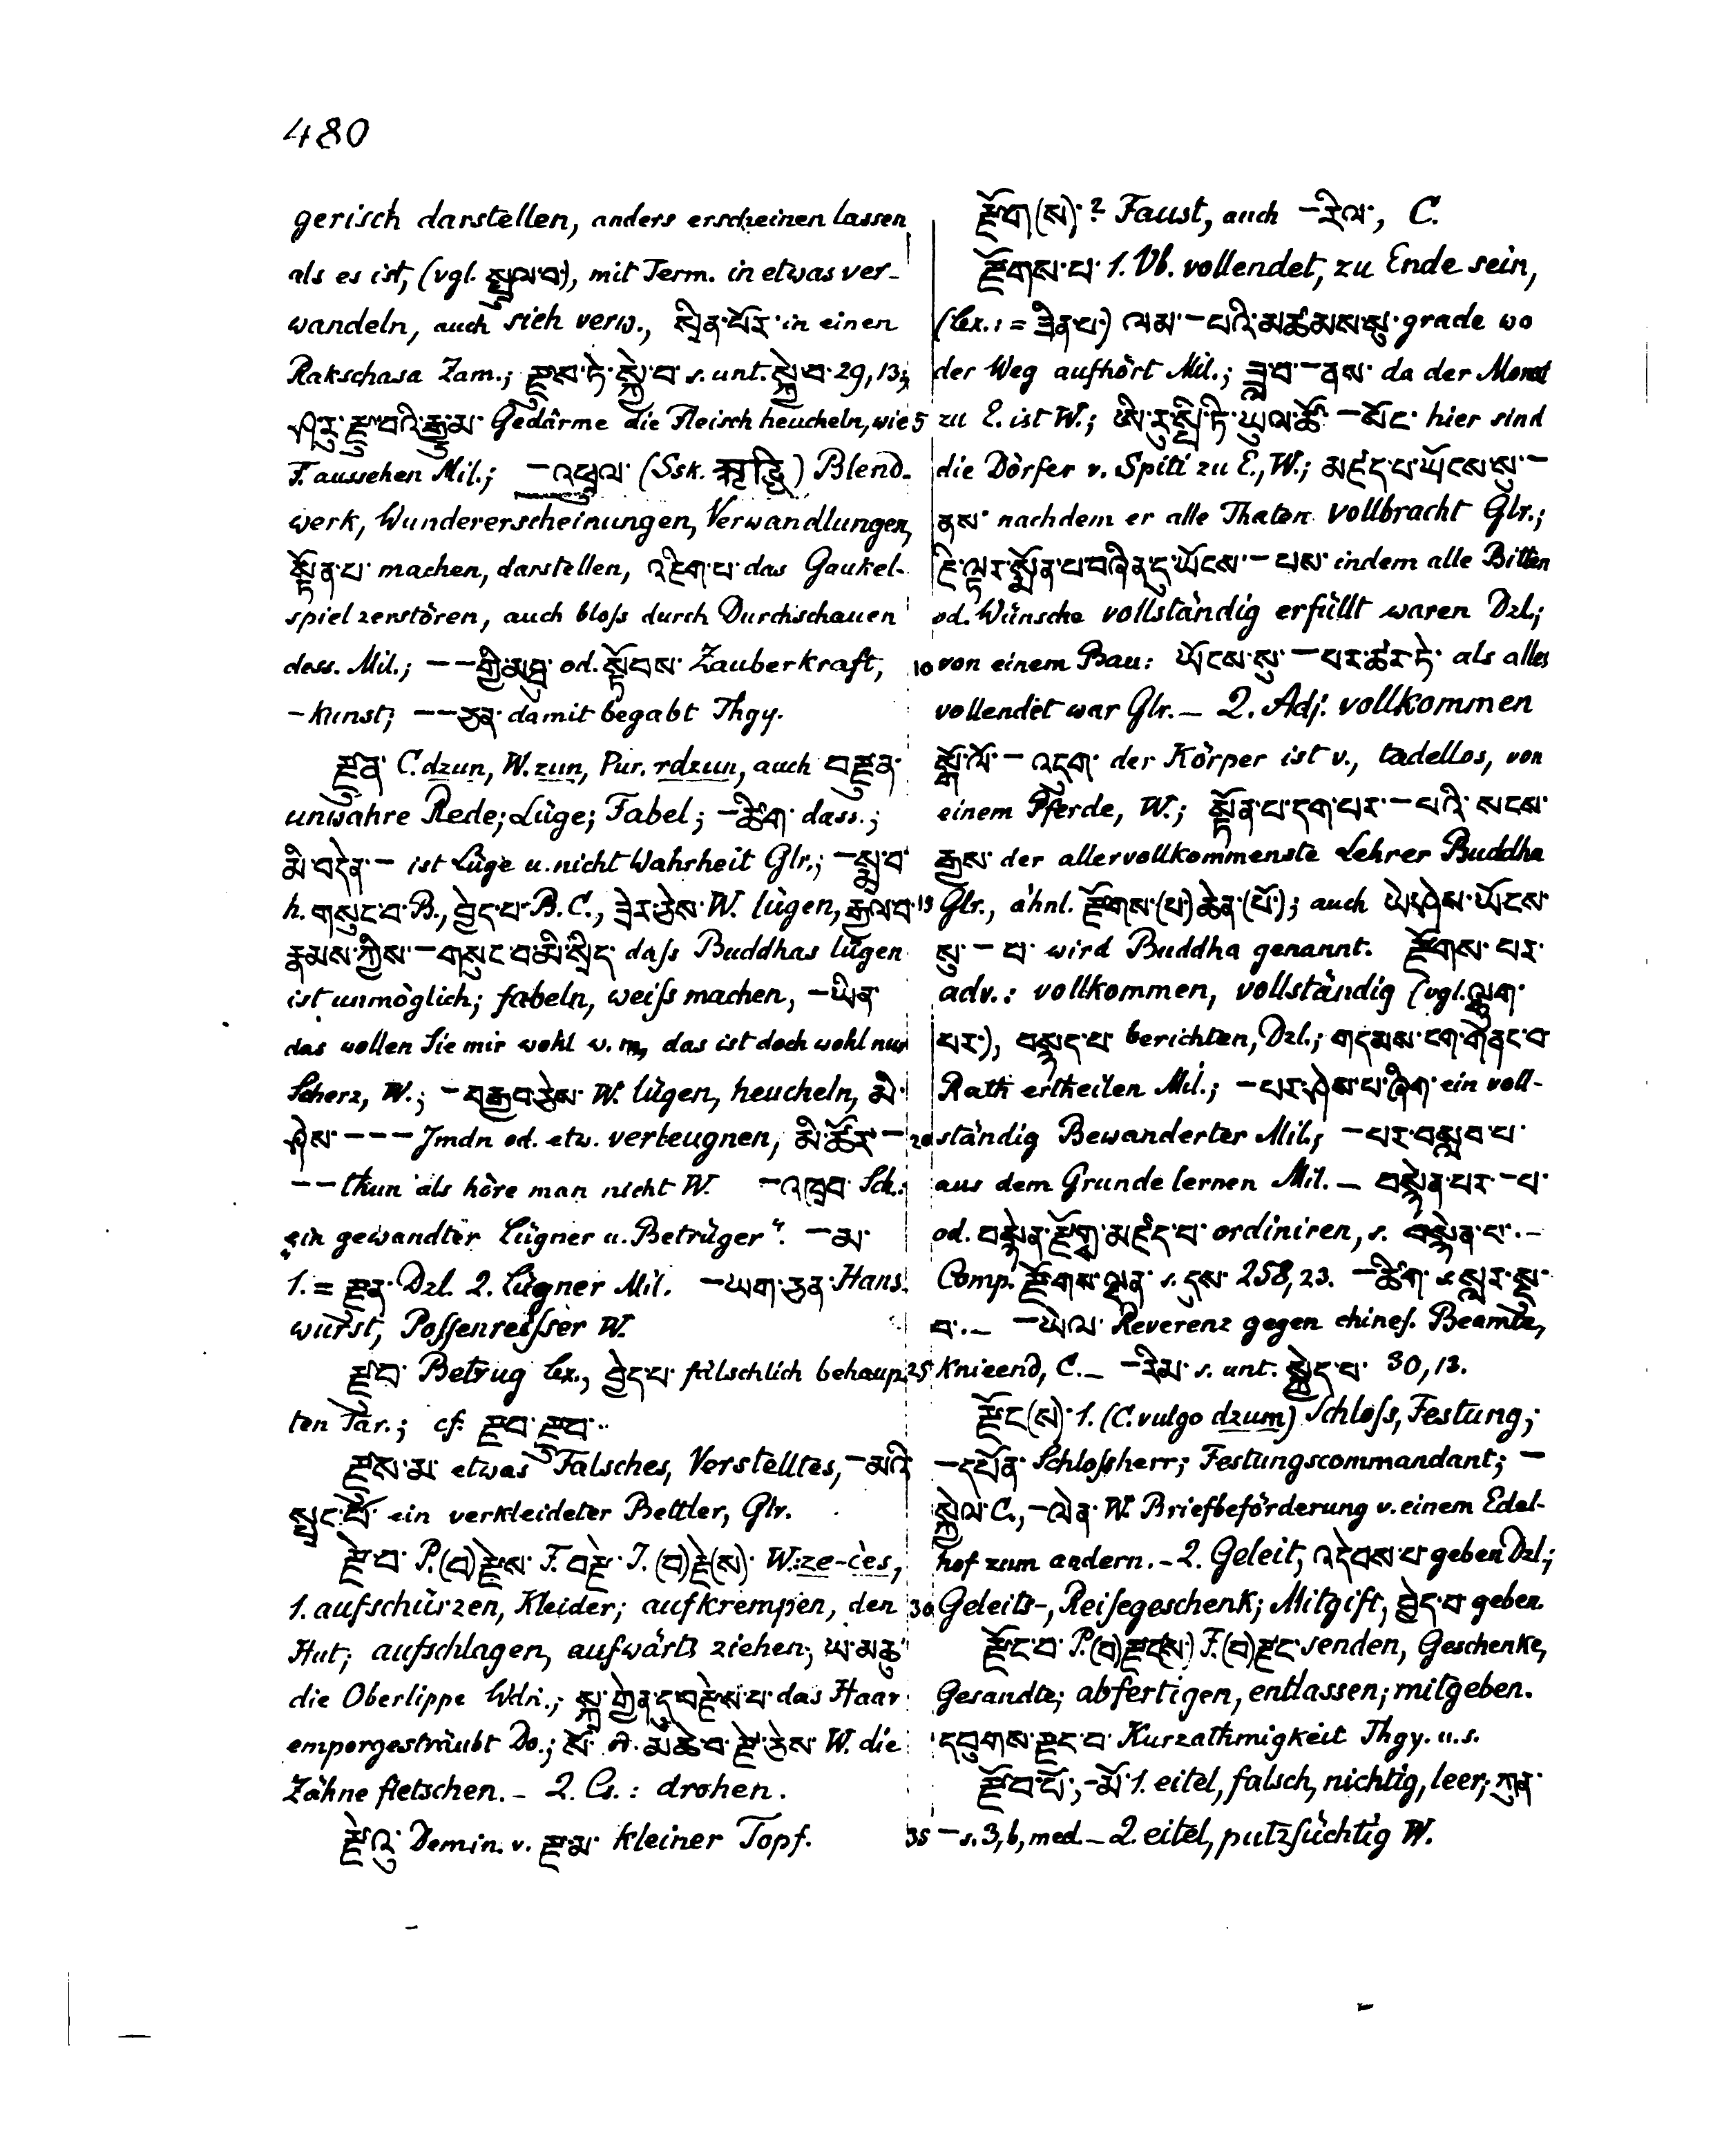 480
gerisch darstellen, anders erscheinen lassen
als es ist, (vgl. སྤྲུལ་བ་), mit Term. in etwas ver-
wandeln, auch sich verw., སྲིན་པོར་ in einen
Rakschasa Zam.; རྫུས་ཏེ་སྐྱེ་བ་ s. unt. སྐྱེ་བ་ 29, 13;
ཤ་རུ་རྫུ་བའི་རྒྱུ་མ་ Gedärme die Fleisch heucheln, wie
F. aussehen Mil.; –འཕྲུལ་ (Ssk. ऋद्धि) Blend-
werk, Wundererscheinungen, Verwandlungen,
སྟོན་པ་ machen, darstellen, འཇིག་པ་ das Gaukel-
spiel zerstören, auch bloſs durch Durchschauen
dess. Mil.; – –གྱི་མཐུ་ od. སྟོབས་ Zauberkraft,
-kunst; – –ཅན་ damit begabt Thgy.
རྫུན་ C. dzun, W. zun, Pur. rdzun, auch བརྫུན་
unwahre Rede; Lüge; Fabel; –ཚིག་ dass.;
མི་བདེན་ – ist Lüge u. nicht Wahrheit Glr.; –སྨྲ་བ་
h. གསུང་བ་ B., བྱེད་པ་ B. C., ཟེར་ཅེས་ W. lügen, རྒྱལ་བ་
རྣམས་ཀྱིས་ –གསུང་བ་མི་སྲིད་ daſs Buddhas lügen
ist unmöglich; fabeln, weiſs machen, –ཡིན་
das wollen Sie mir wohl w. m., das ist doch wohl nur
Scherz, W.; –བརྒྱབ་ཅེས་ W. lügen, heucheln, མི་
ཤེས་ – – – Jmdn od. etw. verleugnen, མི་ཚོར་ –
– – thun als höre man nicht W. –འཁྲབ་ Sch.:
„ein gewandter Lügner u. Betrüger“. –མ་
1. = རྫུན་ Dzl. 2. Lügner Mil. –ཡག་ཅན་ Hans-
wurst, Poſsenreiſser W.
རྫུབ་ Betrug Lex., བྱེད་པ་ fälschlich behaup-
ten Tar.; cf. རྫབ་རྫུབ་.
རྫུས་མ་ etwas Falsches, Verstelltes, –མའི་
སྤྲང་པོ་ ein verkleideter Bettler, Glr.
རྫེ་བ་ P. (བ)རྫེས་ F. བརྫེ་ I. (བ)རྫེ(ས)་ W.: ze-ces,
1. aufschürzen, Kleider; aufkrempen, den
Hut; aufschlagen, aufwärts ziehen; ཡ་མཆུ་
die Oberlippe Wdn.; སྐྲ་གྱེན་དུ་བརྫེས་པ་ das Haar
emporgesträubt Do.; སོ་ od. མཆེ་བ་རྫེ་ཅེས་ W. die
Zähne fletschen. – 2. Cs.: drohen.
རྫེའུ་ Demin. v. རྫ་མ་ kleiner Topf.
རྫོག(ས)་? Faust, auch –རིལ་, C.
རྫོགས་པ་ 1. Vb. vollendet, zu Ende sein,
(Lex.: = ཟིན་པ་) ལམ་ –པའི་མཚམས་སུ་ grade wo
der Weg aufhört Mil.; ཟླ་བ་ –ནས་ da der Monat
5 zu E. ist W.; ཨི་རུ་སྤི་ཏི་ཡུལ་ཚོ་ –སོང་ hier sind
die Dörfer v. Spiti zu E., W.; མཛད་པ་ཡོངས་སུ་ –
ནས་ nachdem er alle Thaten vollbracht Glr.;
ཇི་ལྟར་སྨོན་པ་བཞིན་དུ་ཡོངས་ –པས་ indem alle Bitten
od. Wünsche vollständig erfüllt waren Dzl.;
10 von einem Bau: ཡོངས་སུ་ –པར་ཚར་ཏེ་ als alles
vollendet war Glr. – 2. Adj. vollkommen
སྒོ་ལོ་ – འདུག་ der Körper ist v., tadellos, von
einem Pferde, W.; སྟོན་པ་དག་པར་ –པའི་ སངས་
རྒྱས་ der allervollkommenste Lehrer Buddha
15 Glr., ähnl. རྫོགས་(པ་)ཆེན་(པོ་); auch ཡེ་ཤེས་ཡོངས་
སུ་ –པ་ wird Buddha genannt. རྫོགས་པར་
adv.: vollkommen, vollständig (vgl. ལྷུག་
པར་), བསྙད་པ་ berichten, Dzl.; གདམས་ངག་གནང་བ་
Rath ertheilen Mil.; –པར་ཤེས་པ་ཞིག་ ein voll-
20 ständig Bewanderter Mil.; –པར་བསླབ་པ་
aus dem Grunde lernen Mil. – བསྙེན་པར་ –པ་
od. བསྙེན་རྫོགས་མཛད་པ་ ordiniren, s. བསྙེན་པ་. –
Comp. རྫོགས་ལྡན་ s. དུས་ 258, 23. –ཚིག་ s. སླར་སྡུ་
བ་. – –ཡིལ་ Reverenz gegen chineſ. Beamte,
25 knieend, C. – –རིམ་ s. unt. སྐྱེད་པ་ 30, 12.
རྫོང(ས)་ 1. (C. vulgo dzum) Schloſs, Festung;
–དཔོན་ Schloſsherr; Festungscommandant; –
སྐྱེལ་ C., –ལེན་ W. Briefbeförderung v. einem Edel-
hof zum andern. – 2. Geleit, འདེབས་པ་ geben Dzl.;
30 Geleits-, Reiſegeschenk; Mitgift, བྱེད་པ་ geben.
རྫོང་བ་ P. (བ)རྫང(ས)་ F. (བ)རྫང་ senden, Geschenke,
Gesandte; abfertigen, entlassen; mitgeben.
དབུགས་རྫང་བ་ Kurzathmigkeit Thgy. u. s.
རྫོབ་པོ་, –མོ་ 1. eitel, falsch, nichtig, leer; ཀུན་
35 – s. 3, b, med. – 2. eitel, putzſüchtig W.